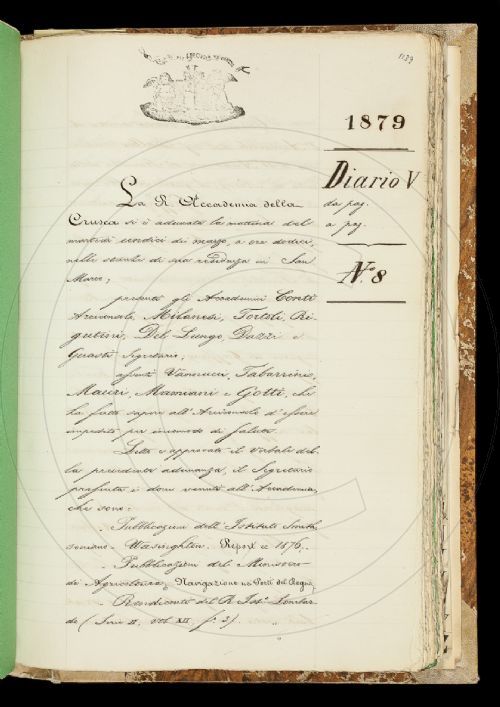 1139
1879
Diario V
da pag.
a pag.
N.º 8
La R. Accademia della
Crusca si è adunata la mattina del
martedì undici di marzo, a ore dodici,
nelle stanze di sua residenza in San
Marco;
presenti gli Accademici Conti
Arciconsolo, Milanesi, Tortoli, Ri-
gutini, Del Lungo, Dazzi e
Guasti Segretario;
assenti Vannucci, Tabarrini,
Mauri, Mamiani e Gotti, che
ha fatto sapere all'Arciconsolo d'essere
impedito per incomodo di salute.
Letto e approvato il verbale del-
la precedente adunanza, il Segretario
presenta i doni venuti all'Accademia,
che sono:
- Pubblicazioni dell'Istituto Smith-
soniano - Wasinghton. Report 1876.
- Pubblicazioni del Ministero
di Agricoltura, Navigazione ne' Porti del Regno,
- Rendiconti del R. Ist.º Lombar-
do (Serie II, vol. XII, f. 3).